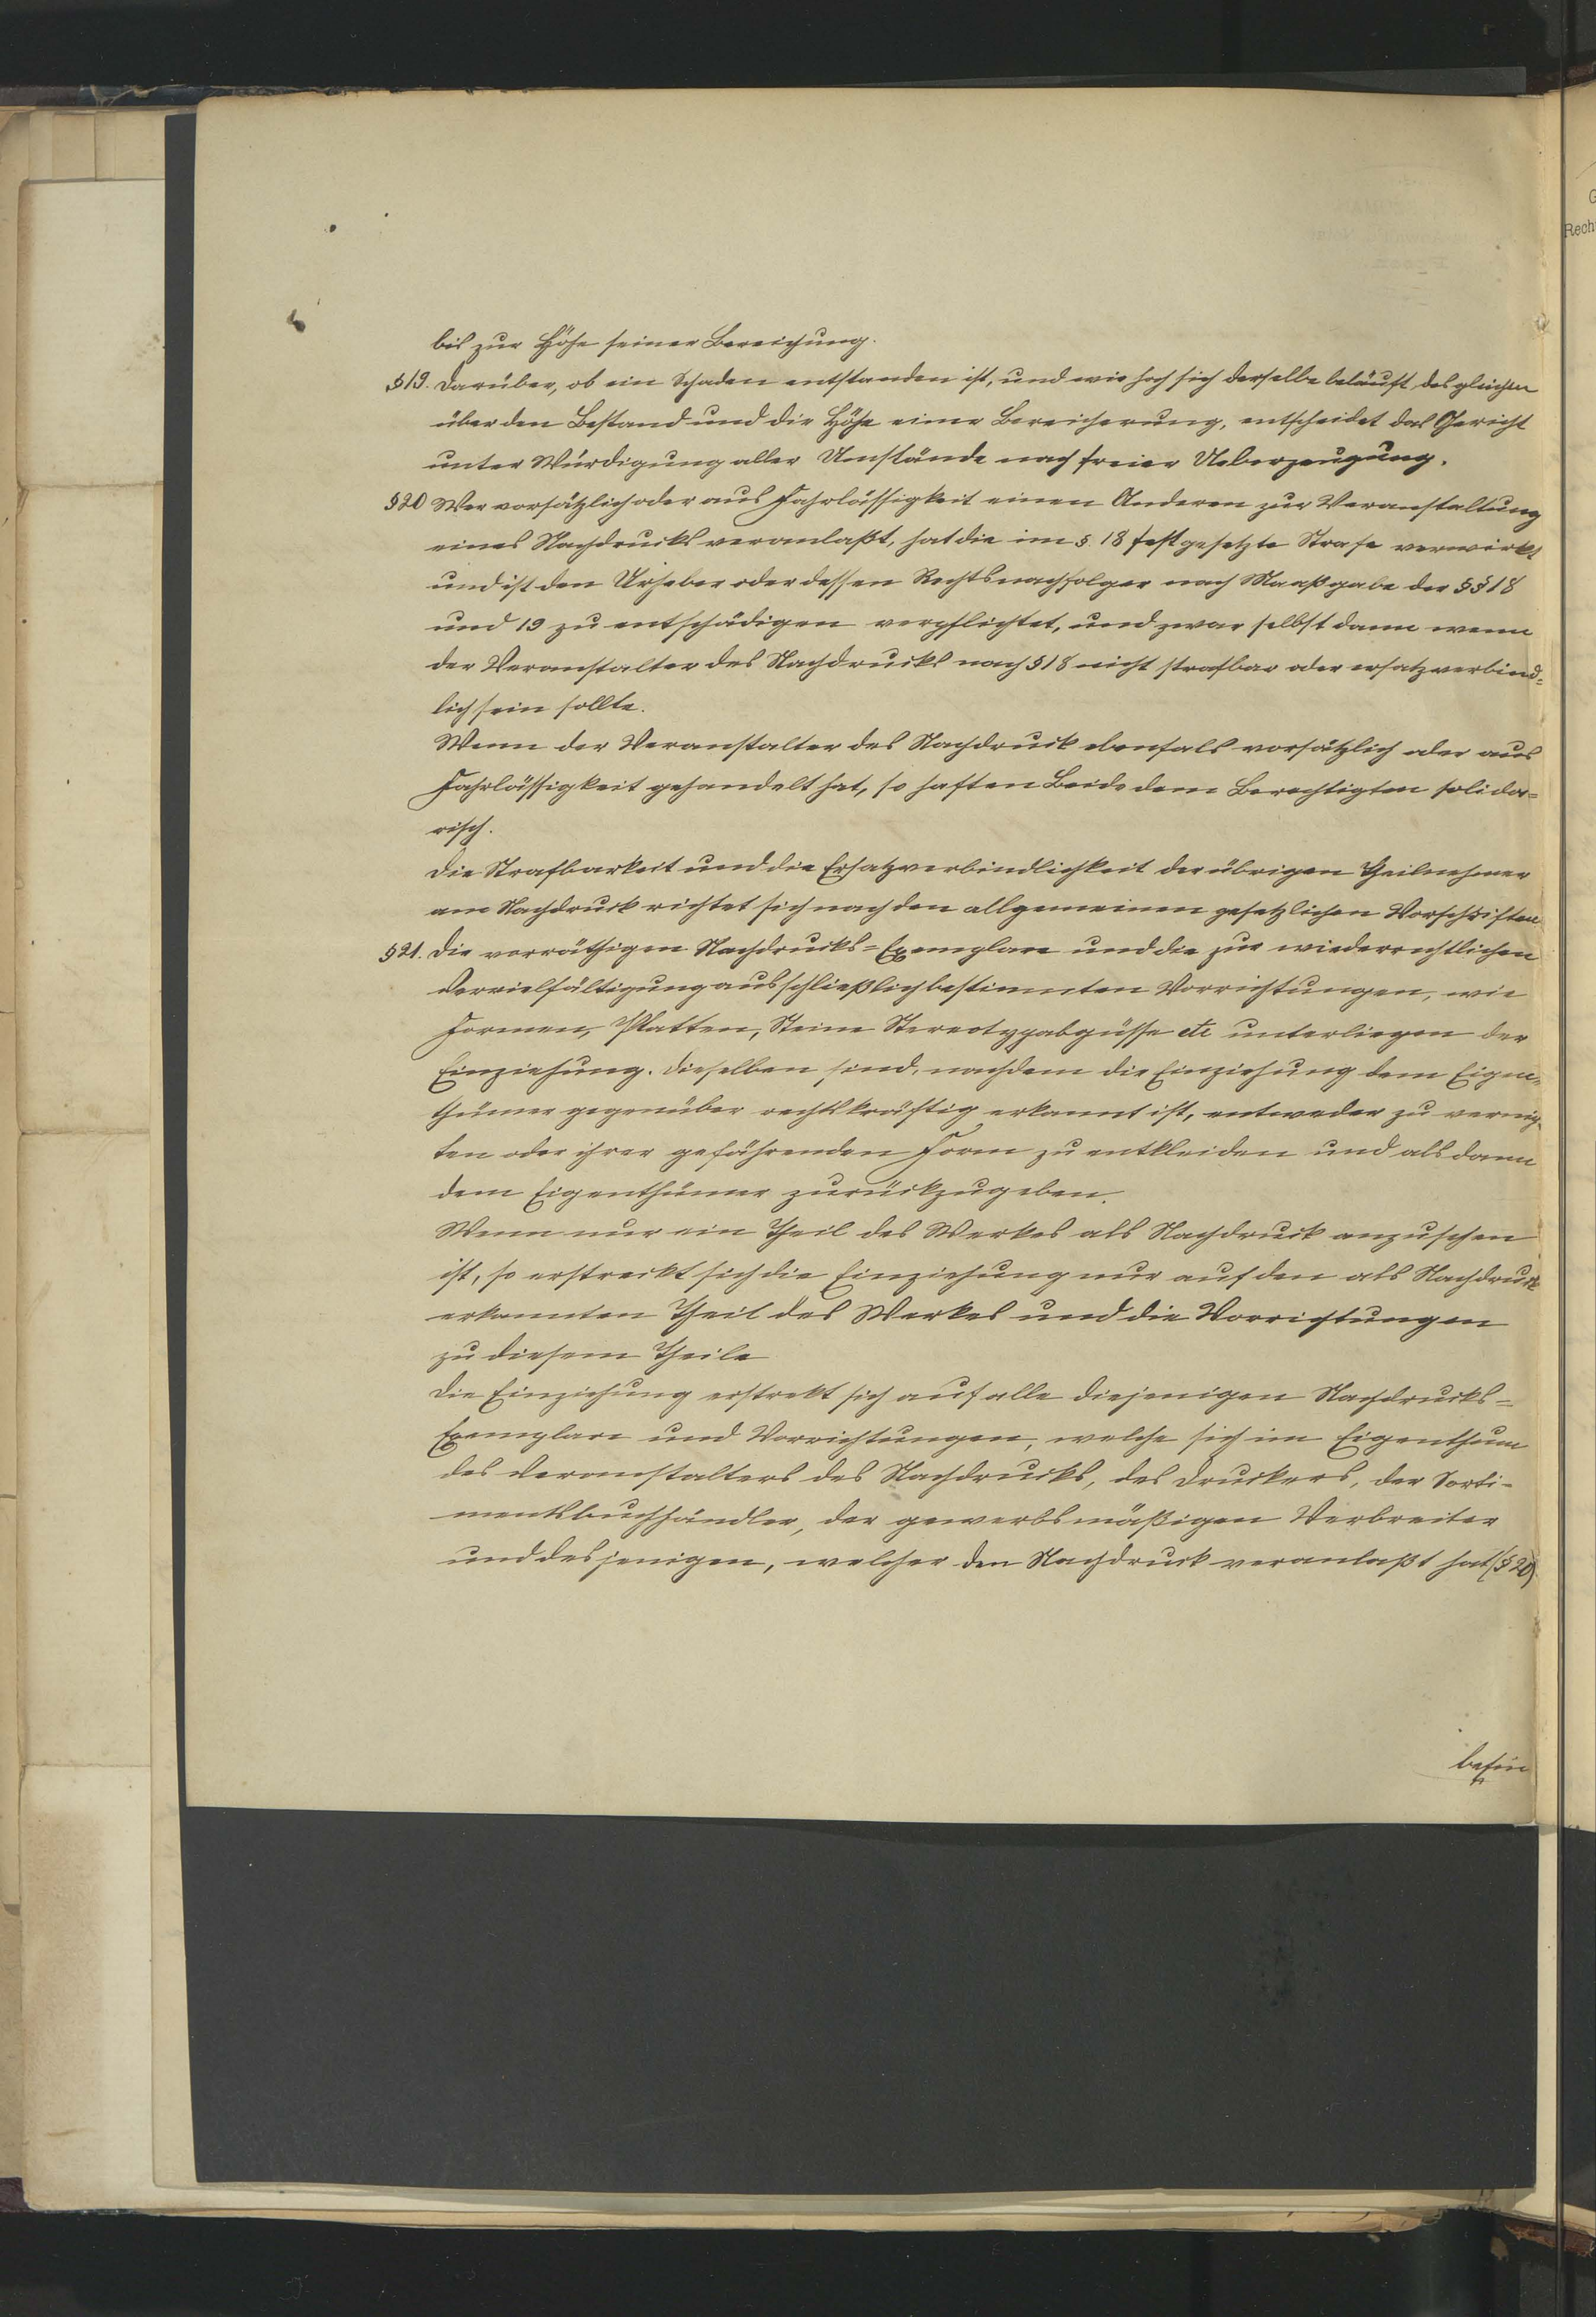 bis zur Höhe seiner Bereichung.
§19. Darüber, ob ein Schaden entstanden ist, und wie hoch sich derselbe beläuft desgleichen
über den Bestand und die Höhe einer Bereicherung, entscheidet das Gericht
unter Würdigung aller Umstände nach freier Ueberzeugung.
§20 Wer vorsätzlich oder aus Fahrlässigkeit einen Anderen zur Veranstaltung
eines Nachdrucks veranlaßt, hat die im §. 18 festgesetzte Strafe verwirkt
und ist den Urheber oder dessen Rechtsnachfolger nach Maaßgabe der §§ 18
und 19 zu entschädigen verpflichtet, und zwar selbst dann wenn
der Veranstalter des Nachdrucks nach § 18 nicht strafbar oder ersatzverbind=
lich sein sollte.
Wenn der Veranstalter des Nachdruck ebenfals vorsätzlich oder aus
Fahrlässigkeit gehandelt hat, so haften Beide dem Berechtigten solida=
risch.
Die Strafbarkeit und die Ersatzverbindlichkeit der übrigen Theilnehmer
am Nachdruck richtet sich nach den allgemeinen gesetzlichen Vorschriften
§21. Die vorräthigen Nachdrucks=Exemplare und die zur wiederrechtlichen
Vervielfältigung ausschließlich bestimmten Vorrichtungen, wie
Formen, Platten, Steine Stereotypabgüsse etc unterliegen der
Einziehung. Dieselben sind, nachdem die Einziehung dem Eigen=
thümer gegenüber rechtskräftig erkannt ist, entweder zu vernich=
ten oder ihrer gefährenden Form zu entkleiden und alsdann
dem Eigenthümer zurückzugeben.
Wenn nur ein Theil des Werkes als Nachdruck anzusehen
ist, so erstreckt sich die Einziehung nur auf den als Nachdruck
erkannten Theil des Werkes und die Vorrichtungen
zu diesem Theile
Die Einziehung erstrekt sich auf alle diejenigen Nachdrucks=
Exemplare und Vorrichtungen, welche sich im Eigenthum
des Veranstalters des Nachdrucks, des Druckers, der Sorti-
mentsbuchhändler, der gewerbsmäßigen Verbreiter
und desjenigen, welcher den Nachdruck veranlaßt hat (§ 20)
befin
Rech